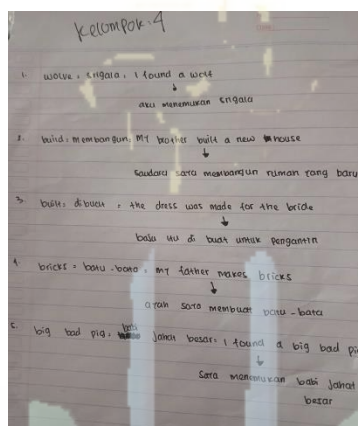 Kelompok : 4
1. wolve : srigala : I found a wolf
aku menemukan srigala
2. build : membangun : My brother built a new house
Saudara saya membangun rumah yang baru
3. built : dibuat : the dress was made for the bride
baju itu di buat untuk pengantin
4. bricks = batu-bata : my father makes bricks
ayah saya membuat batu-bata
5. big bad pig : babi jahat besar : I found a big bad pi
Saya menemukan babi jahat
besar